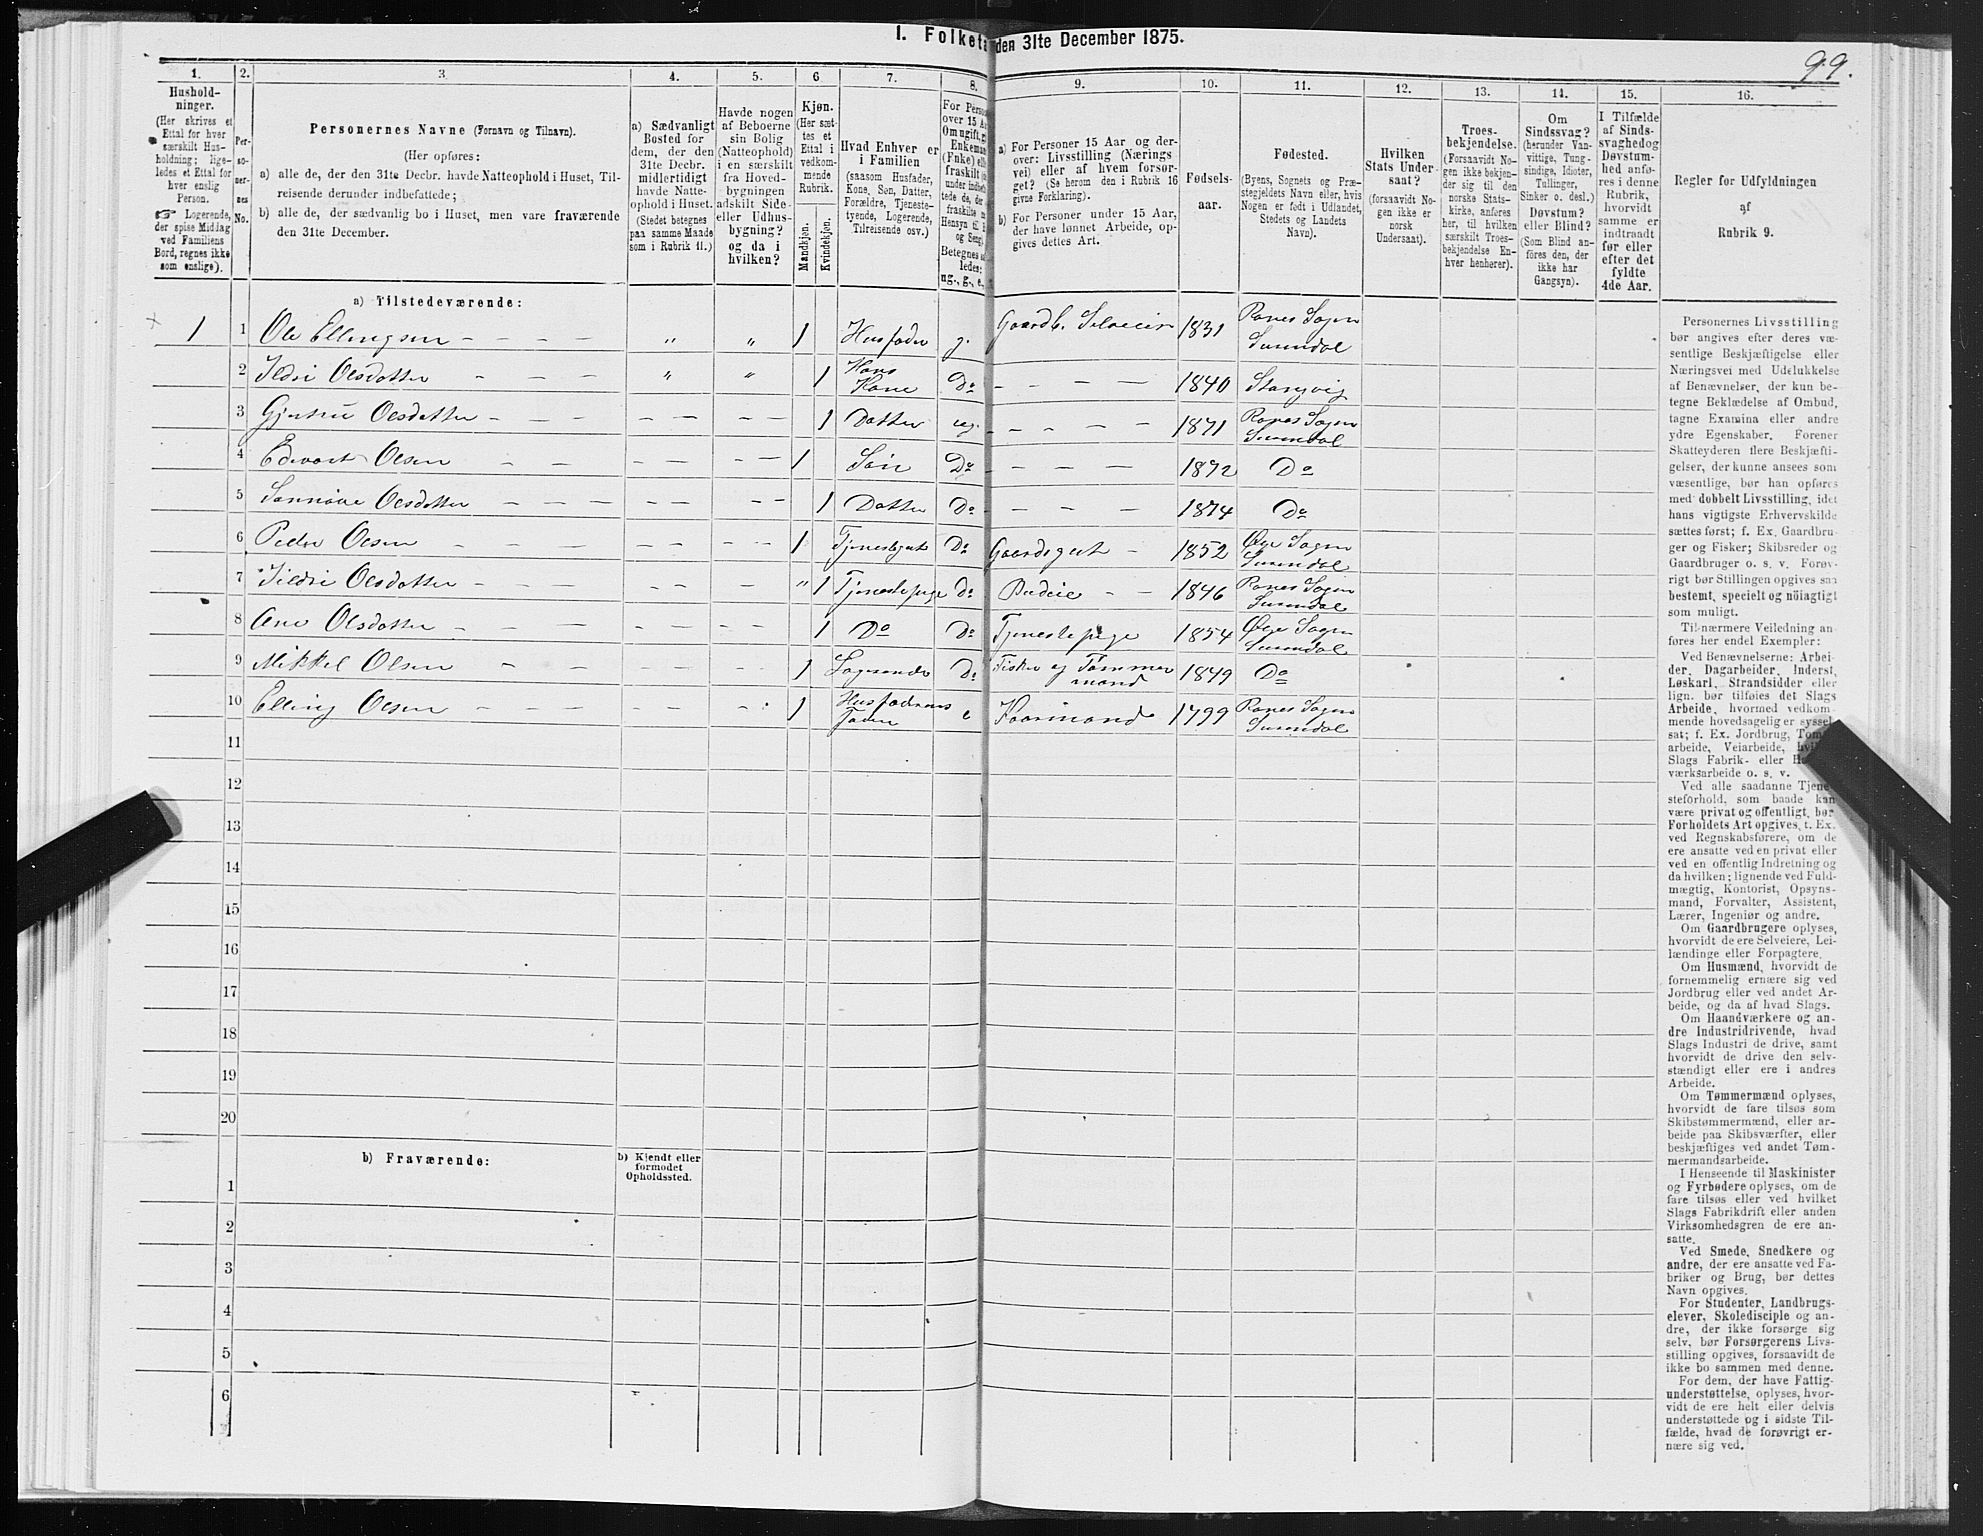 I. Folketæ den 31te December 1875.
99.
1. 2. 3. 4. 5. 6 7. 8. 9. 10. 11. 12. 13. 14. 15. 16.
Hushold-
ninger.
(Her skrives et
Ettal for hver
særskilt Hus-
holdning; lige-
ledes et Ettal for
hver enslig
Person.
☞ Logerende,
der spise Middag
ved Familiens
Bord, regnes ikke
som enslige).
Per-
so-
ner-
nes
No.
Personernes Navne (Fornavn og Tilnavn).
(Her opføres:
a) alle de, der den 31te Decbr. havde Natteophold i Huset, Til-
reisende derunder indbefattede;
b) alle de, der sædvanlig bo i Huset, men vare fraværende
den 31te December.
a) Sædvanligt
Bosted for
dem, der den
31te Decbr.
midlertidigt
havde Natte-
ophold i Huset.
(Stedet betegnes
paa samme Maade
som i Rubrik 11.)
Havde nogen
af Beboerne
sin Bolig
(Natteophold)
i en særskilt
fra Hoved-
bygningen
adskilt Side-
eller Udhus-
bygning?
og da i
hvilken?
Kjøn.
(Her sæt-
tes et
Ettal i
vedkom-
mende
Rubrik.
Mandkjøn.
Kvindekjøn.
Hvad Enhver er
i Familien
(saasom Husfader,
Kone, Søn, Datter,
Forældre, Tjeneste-
tyende, Logerende,
Tilreisende osv.)
For Perso
over 15 A
Om ugift, g
Enkema
(Fnke) ell
fraskilt
under indbe
tede de, de
fraskilte
Hensyn til
og Seng
Betegnes s
ledes:
ug., g., e.
a) For Personer 15 Aar og der-
over: Livsstilling (Nærings
vei) eller af hvem forsør-
get? (Se herom den i Rubrik 16
givne Forklaring).
b) For Personer under 15 Aar,
der have lønnet Arbeide, op-
gives dettes Art.
Fødsels-
aar.
Fødested.
(Byens, Sognets og Præ-
stegjeldets Navn eller, hvis
Nogen er født i Udlandet,
Stedets og Landets
Navn).
Hvilken
Stats Under-
saat?
(forsaavidt No-
gen ikke er
norsk
Undersaat).
Troes-
bekjendelse.
(Forsaavidt No-
gen ikke bekjen-
der sig til den
norske Stats-
kirke, anføres
her, til hvilken
særskilt Troes-
bekjendelse En-
hver henhører).
Om
Sindssvag?
(herunder Van-
vittige, Tung-
sindige, Idioter,
Tullinger,
Sinker o. desl.)
Døvstum?
eller Blind?
(Som Blind an-
føres den, der
ikke har
Gangsyn).
I Tilfælde
af Sinds-
svaghed og
Døvstum-
hed anfø-
res i denne
Rubrik,
hvorvidt
samme er
indtraadt
før eller
efter det
fyldte
4de Aar.
Regler for Udfyldningen
af
Rubrik 9.
a) Tilstedeværende:
1 1 Ole Ellingsen " " 1 Husfader g. Gaardb. Selveier 1831 Ranes Sogn Surendal
2 Ildri Olsdatter " " 1 Hans Kone Do 1840 Stangvig
3 Gjertru Olsdatter 1 Datter ug. 1871 Ranes Sogn Surendal
4 Edvart Olsen 1 Søn Do 1872 Do
5 Sønnøve Olsdatter 1 Datter Do 1874 Do
6 Peder Olsen 1 Tjenestegut Do Gaardsgut 1852 Øye Sogn Surendal
7 Sildri Olsdatter " 1 Tjenestepige do Budeie 1846 Ranes Sogn Surendal
8 Ane Olsdatter 1 Do Do Tjenestepige 1854 Øye Sogn Surendal
9 Mikkel Olsen 1 Logerende Do Fisker og Tømmermand 1849 Do
10 Elling Olsen 1 Husfaderens Fader e Kaarmand 1799 Ranes Sogn Surendal
11
12
13
14
15
16
17
18
19
20
b) Fraværende:
b) Kjendt eller
formodet
Opholdssted.
1
2
3
4
5
6
Personernes Livsstilling
bør angives efter deres væ-
sentlige Beskjæftigelse eller
Næringsvei med Udelukkelse
af Benævnelser, der kun be-
tegne Beklædelse af Ombud,
tagne Examina eller andre
ydre Egenskaber. Forener
Skatteyderen flere Beskjæfti-
gelser, der kunne ansees som
væsentlige, bør han opføres
med dobbelt Livsstilling, idet
hans vigtigste Erhvervskilde
sættes først; f. Ex. Gaardbru-
ger og Fisker; Skibsreder og
Gaardbruger o. s. v. Forøv-
rigt bør Stillingen opgives saa
bestemt, specielt og nøiagtigt
som muligt.
Til nærmere Veiledning an-
føres her endel Exempler:
Ved Benævnelserne: Arbei-
der, Dagarbeider, Inderst,
Løskarl, Strandsidder eller
lign. bør tilføies det Slags
Arbeide, hvormed vedkom-
mende hovedsagelig er syssel-
sat; f. Ex. Jordbrug, Tom
arbeide, Veiarbeide, hvil
Slags Fabrik- eller H
værksarbeide o. s. v.
Ved alle saadanne Tjene-
steforhold, som baade kan
være privat og offentligt, bør
Forholdets Art opgives, t. Ex.
ved Regnskabsførere, om de
ere ansatte ved en privat eller
ved en offentlig Indretning og
da hvilken; lignende ved Fuld-
mægtig, Kontorist, Opsyns-
mand, Forvalter, Assistent,
Lærer, Ingeniør og andre.
Om Gaardbrugere oplyses,
hvorvidt de ere Selveiere, Lei-
lændinge eller Forpagtere.
Om Husmænd, hvorvidt de
fornemmelig ernære sig ved
Jordbrug eller ved andet Ar-
beide, og da af hvad Slags.
Om Haandværkere og an-
dre Industridrivende, hvad
Slags Industri de drive, samt
hvorvidt de drive den selv-
stændigt eller ere i andres
Arbeide.
Om Tømmermænd oplyses,
hvorvidt de fare tilsøs som
Skibstømmermænd, eller ar-
beide paa Skibsværfter, eller
beskjæftiges ved andet Tøm-
mermandsarbeide.
I Henseende til Maskinister
og Fyrbødere oplyses, om de
fare tilsøs eller ved hvilket
Slags Fabrikdrift eller anden
Virksomhedsgren de ere an-
satte.
Ved Smede, Snedkere og
andre, der ere ansatte ved Fa-
briker og Brug, bør dettes
Navn opgives.
For Studenter, Landbrugs-
elever, Skoledisciple og an-
dre, der ikke forsørge sig
selv, bør Forsørgerens Livs-
stilling opgives, forsaavidt de
ikke bo sammen med denne.
For dem, der have Fattig-
understøttelse, oplyses, hvor-
vidt de ere helt eller delvis
understøttede og i sidste Til-
fælde, hvad de forøvrigt er-
nære sig ved.